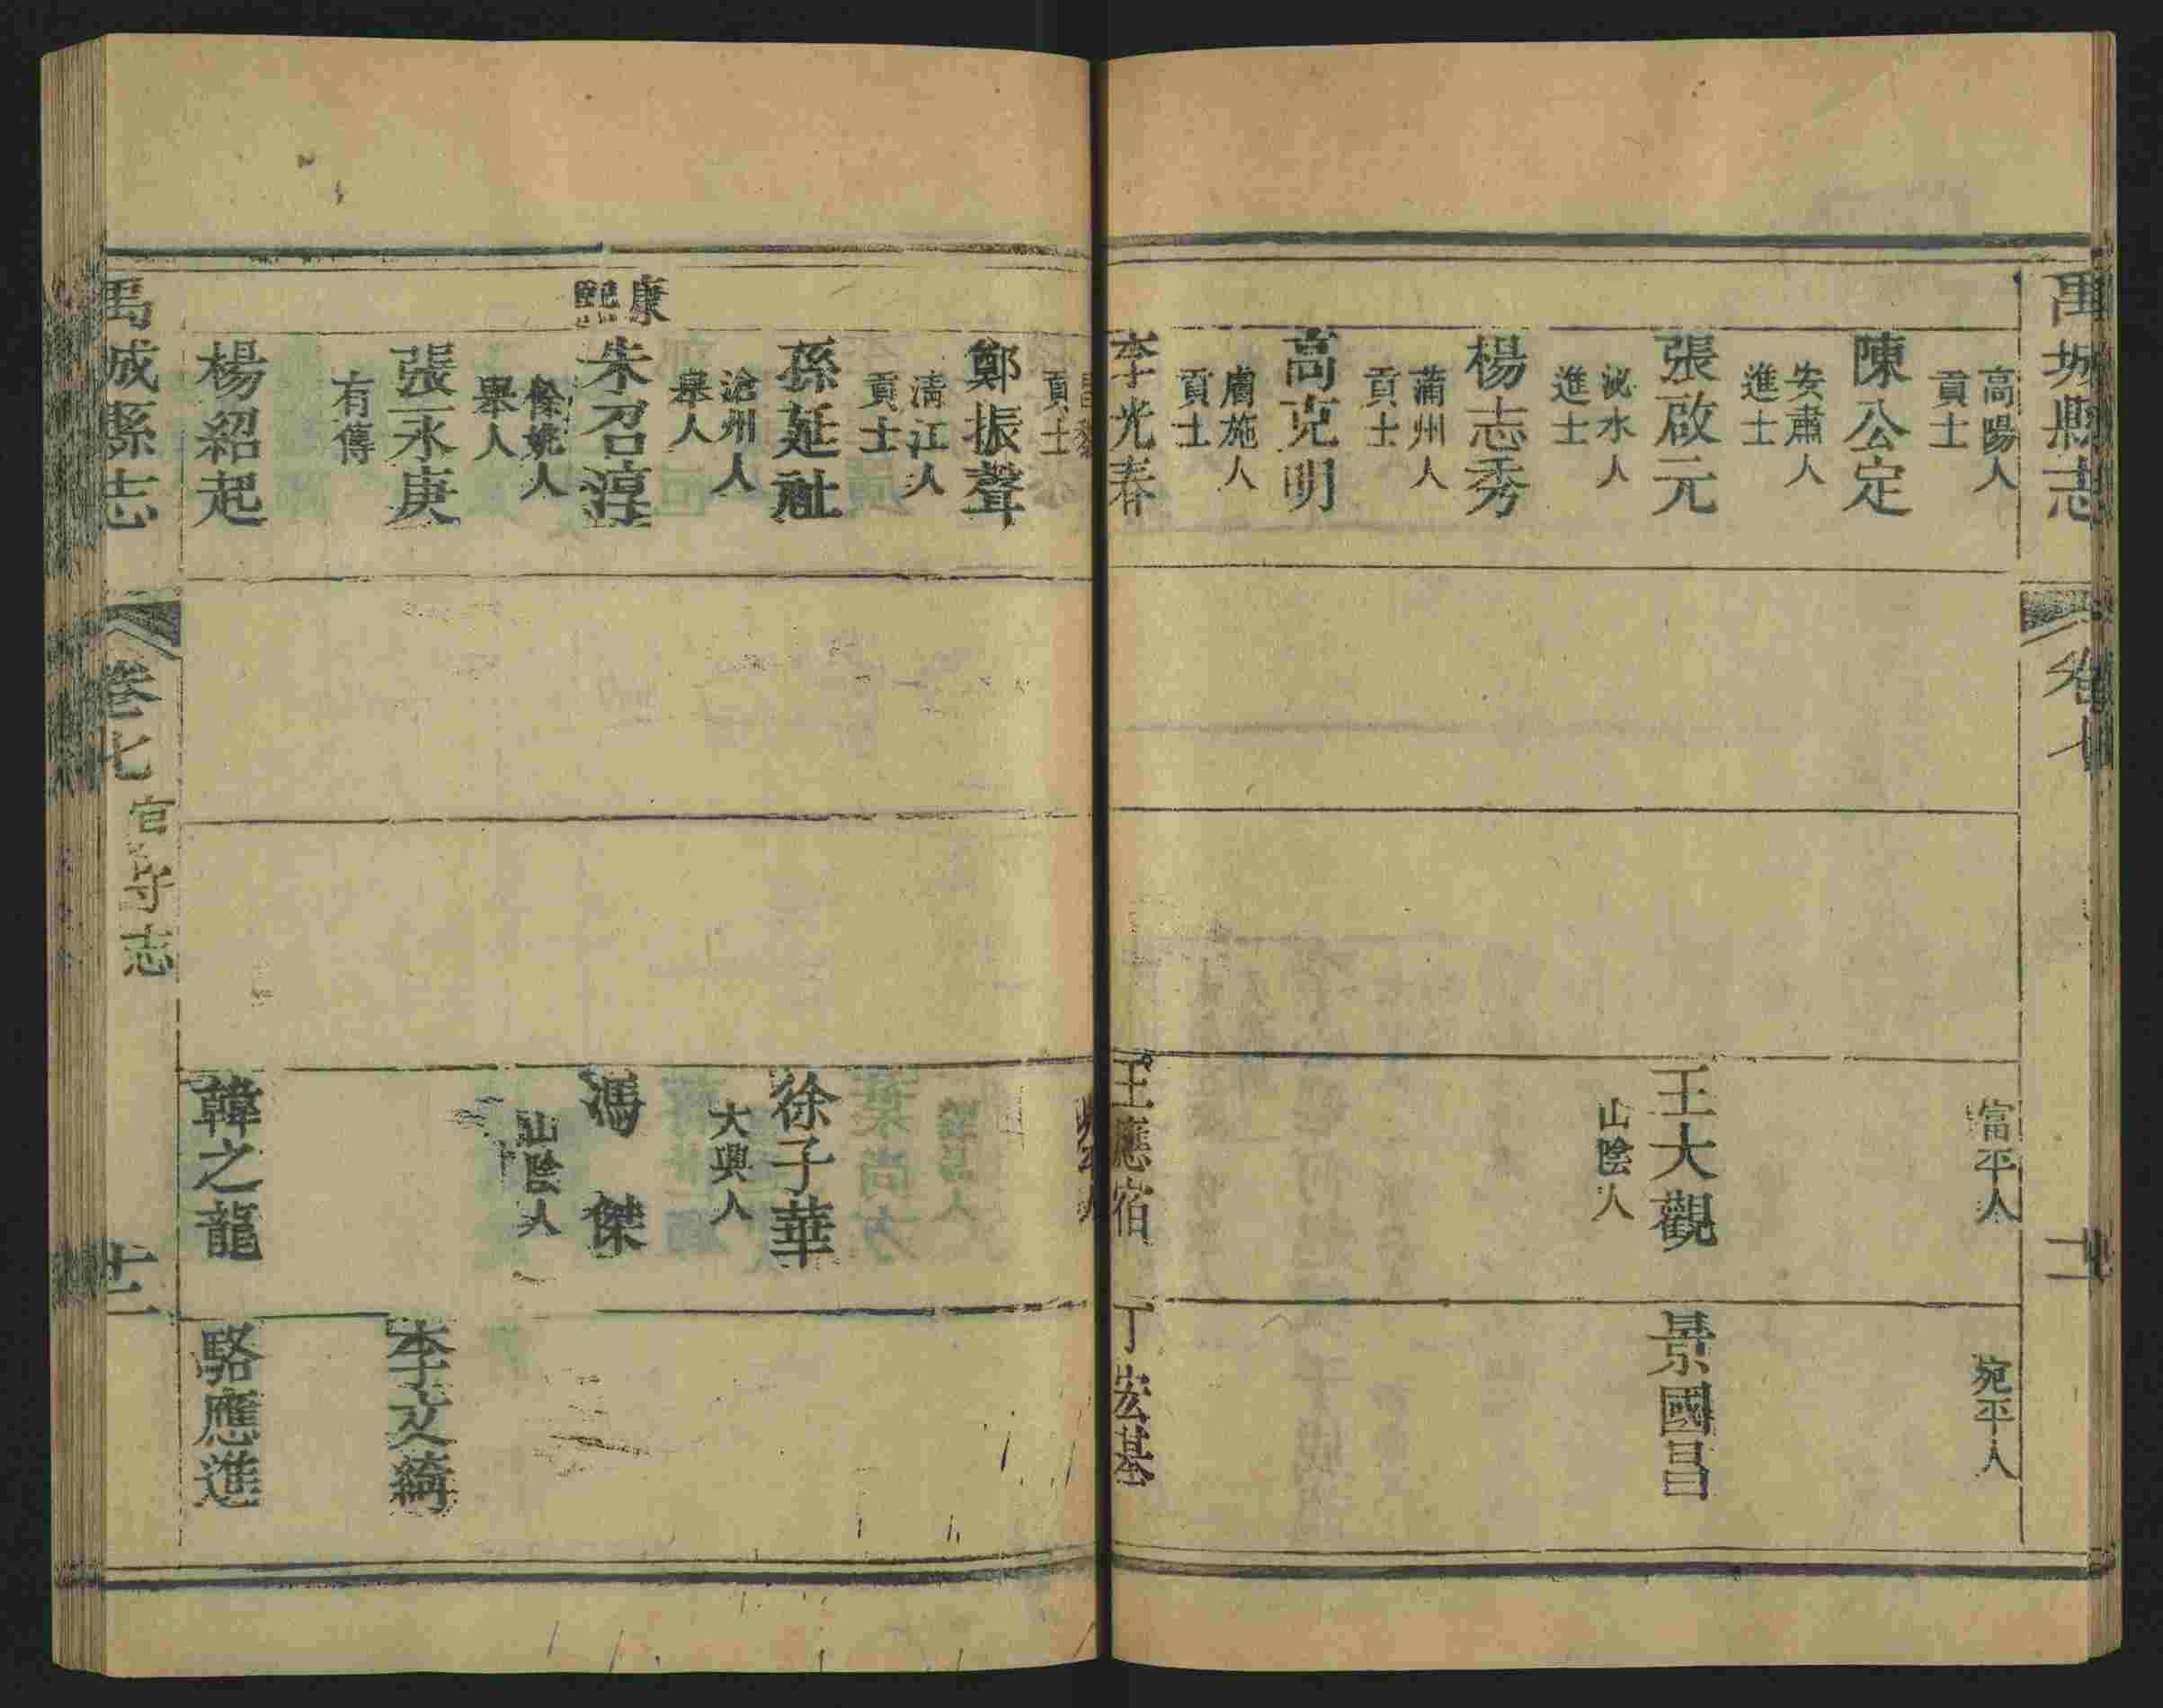 禹城縣志
卷七
十一
高陽人
貢士
陳公定
安肅人
進士
張啟元
泌水人
進士
楊志秀
蒲州人
貢士
高克明
膚施人
貢士
李光春
富平人
王大觀
山陰人
王應宿
宛平人
景國昌
丁宏基
貢士
鄭振聲
清江人
貢士
孫延祉
滄州人
舉人
康熙
朱召淳
餘姚人
舉人
張永庚
有傳
楊紹起
徐子華
大興人
馮傑
山陰人
韓之龍
李文綺
駱應進
禹城縣志
卷七
官守志
十二